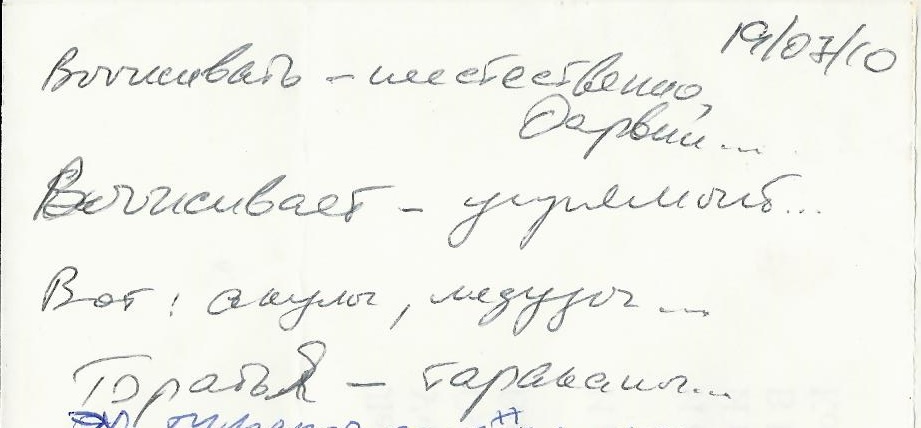 19/07/10
Выживать – неестественно,
Дарвин...
Выживает – упрямый...
Вот: акулы, медузы...
– тараканы...